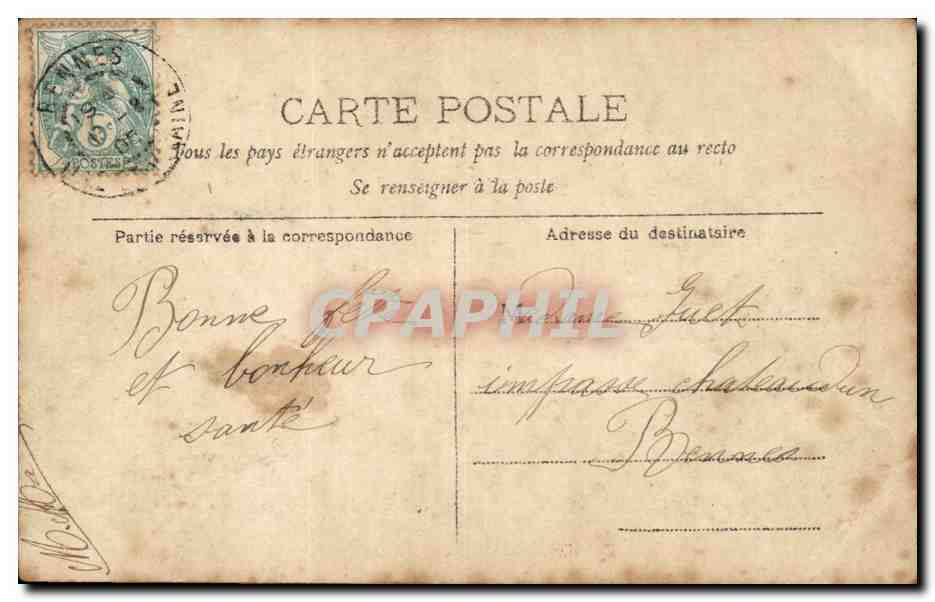 RENNES
5c
POSTES
CARTE POSTALE
Tous les pays étrangers n'acceptent pas la correspondance au recto
Se renseigner à la poste
Partie réservée à la correspondance
Adresse du destinataire
Bonne fête
et bonheur
santé
Madame Guet
impasse chateaudun
Rennes
CPAPHIL